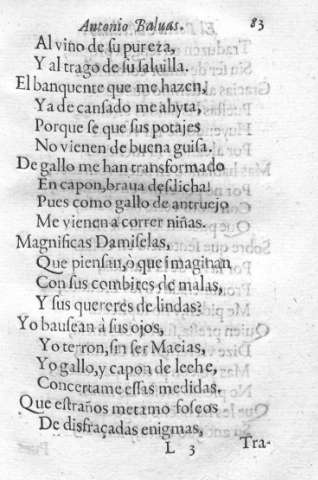 Antonio Baluas. 83
Al viño de su pureza,
Y al trago de su saluilla.
El banquente que me hazen,
Ya de cansado me ahyta,
Porque se que sus potajes
No vienen de buena guisa.
De gallo me han transformado
En capon, braua desdicha!
Pues como gallo de antruejo
Me vienen a correr niñas.
Magnificas Damiselas,
Que piensan, ò que imaginan
Con sus combites de malas,
Y sus quereres de lindas?
Yo bausean à sus ojos,
Yo terron, sin ser Macias,
Yo gallo, y capon de leche,
Concertame essas medidas.
Que estraños metamofoseos
De disfraçadas enigmas,
L 3 Tra-